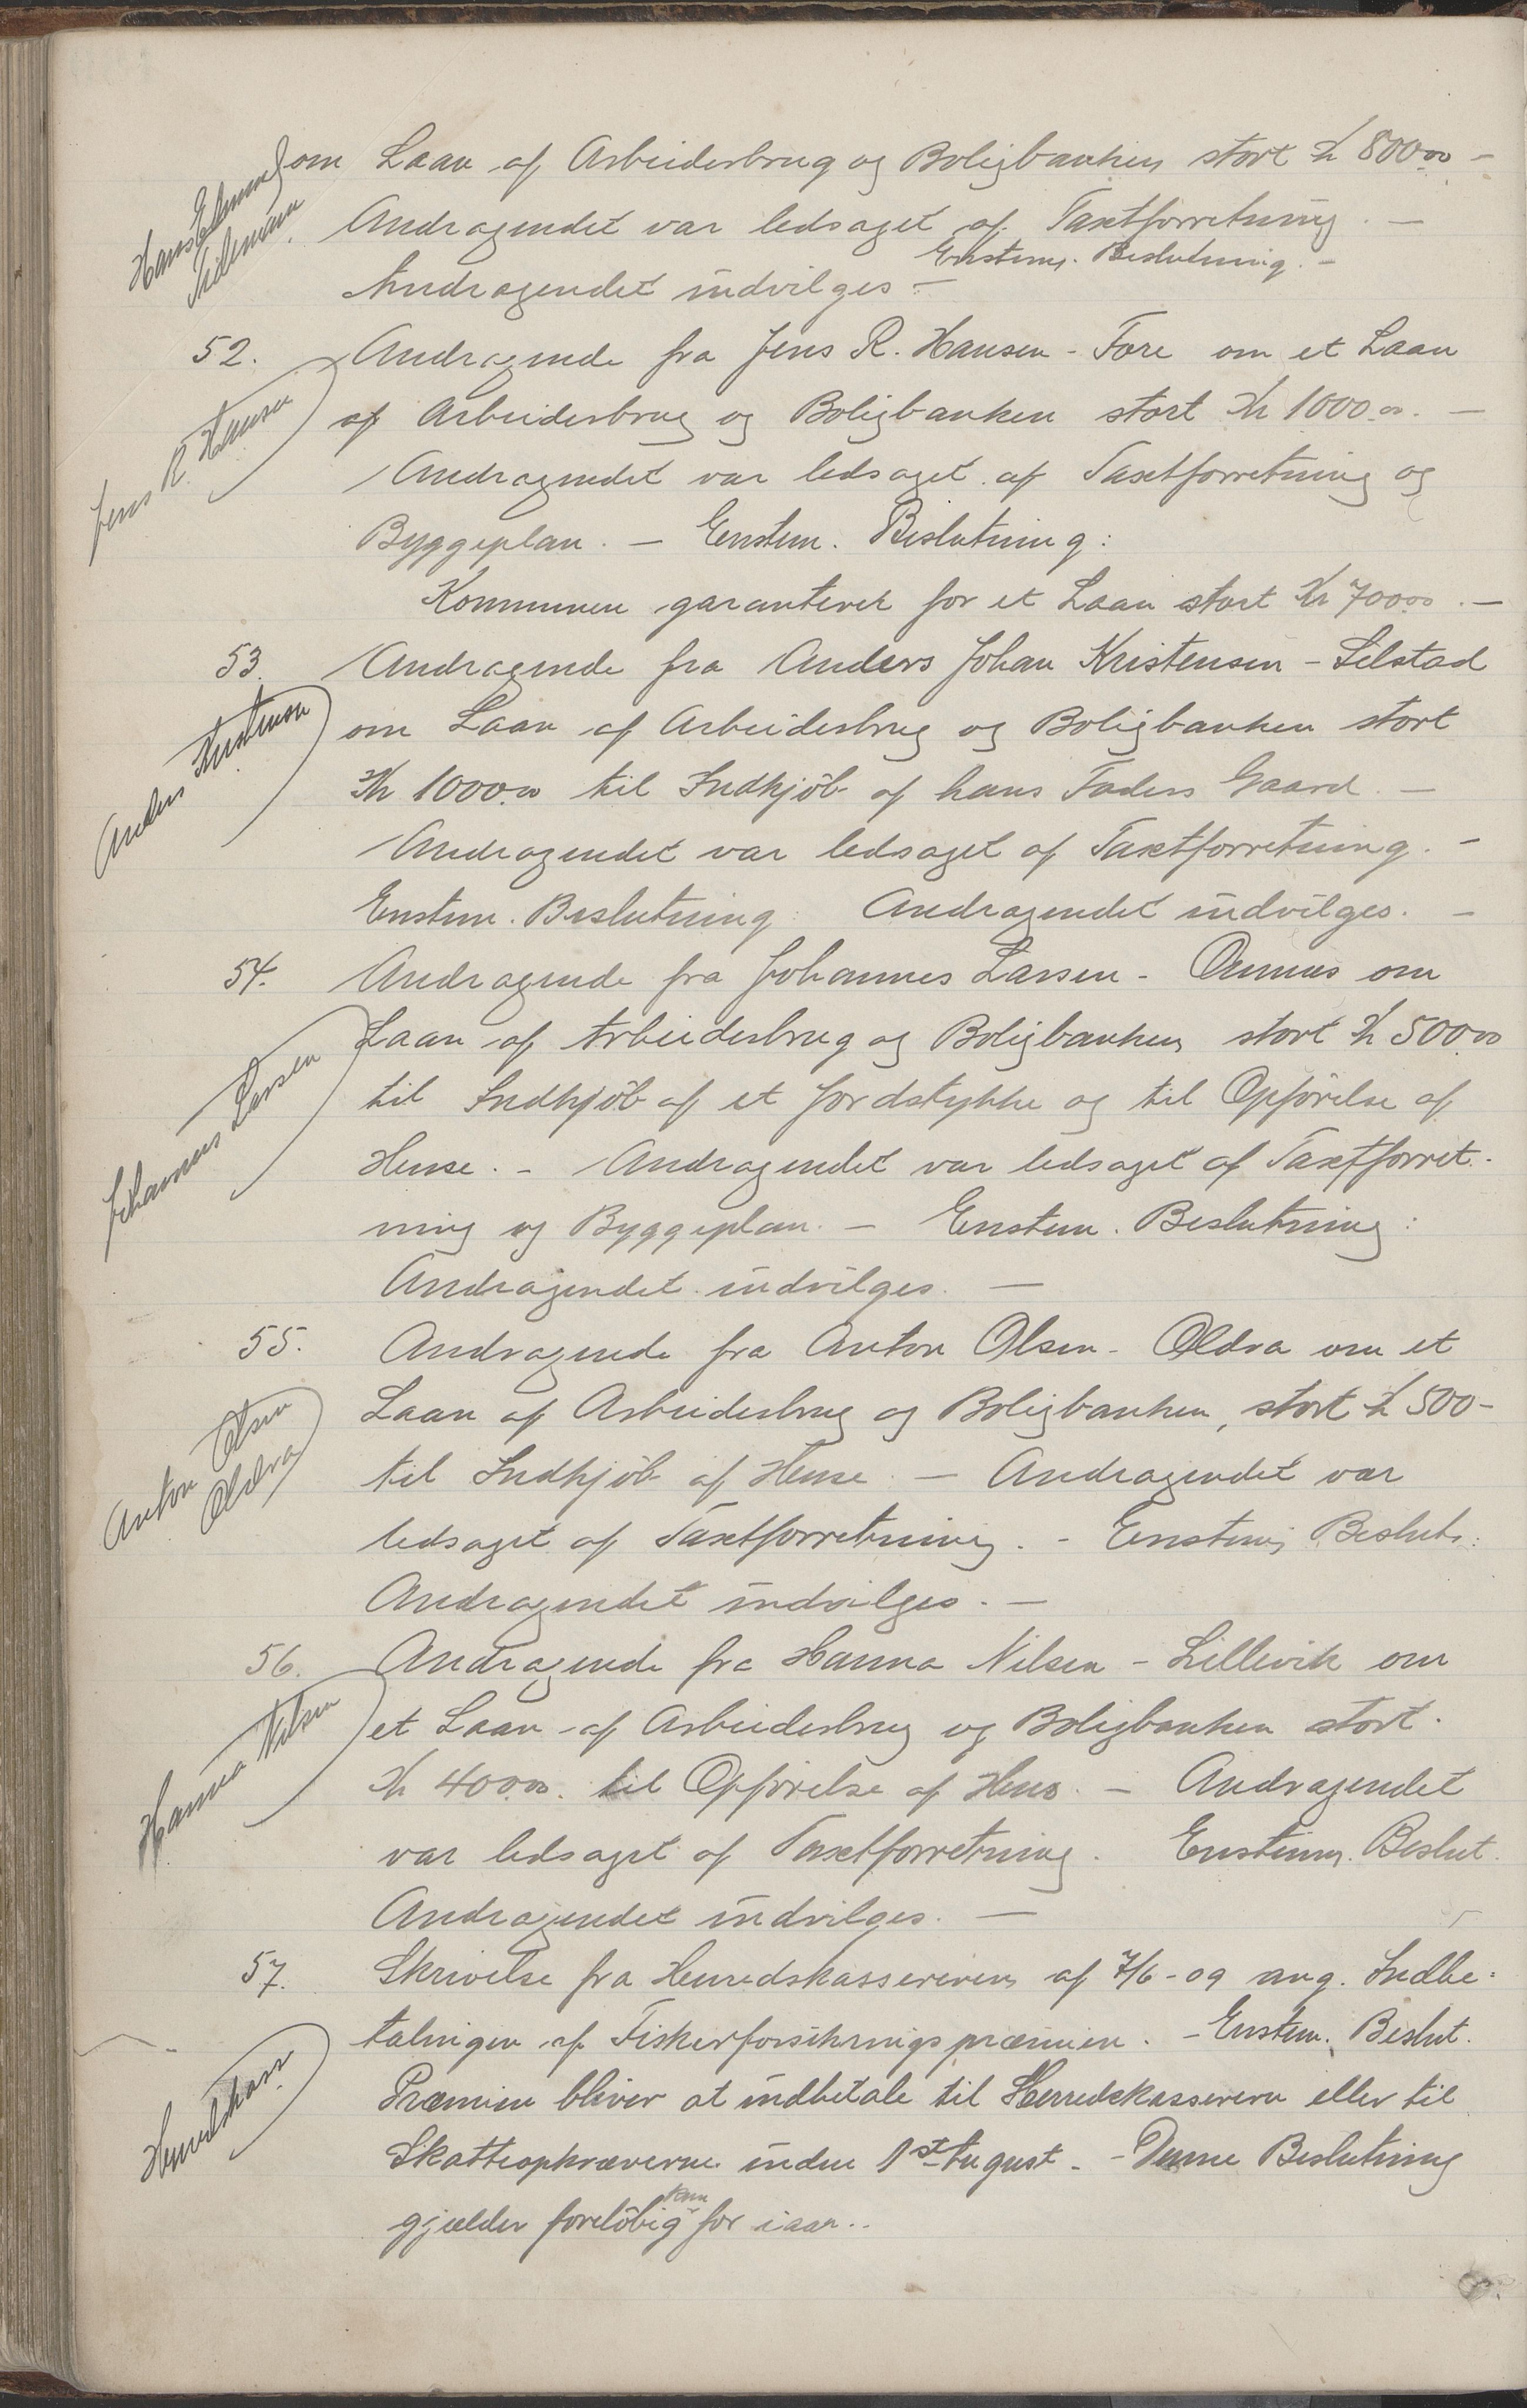 om Laan af Arbeiderbrug og Boligbanken stort Kr 800.00 –
Hans Edvard
Andragendet var ledsaget af Taxtforretning. –
Enstem. Beslutning. –
Andragendet indvilges –
52. Andragende fra Jens R. Hansen - Fore om et Laan
Jens R. Hansen
af Arbeiderbrug og Boligbanken stort Kr 1000.00. –
Andragendet var ledsaget af Taxtforretning og
Byggeplan. – Enstem. Beslutning:
Kommunen garanterer for et Laan stort Kr 700.00. –
53. Andragende fra Anders Johan Kristensen - Selstad
Anders Kristensen
om Laan af Arbeiderbrug og Boligbanken stort
Kr 1000.00 til Indkjöb af hans Faders Gaard. –
Andragendet var ledsaget af Taxtforretning. –
Enstem. Beslutning: Andragendet indvilges. –
54. Andragende fra Johannes Larsen - Ornnes om
Johannes Larsen
Laan af Arbeiderbrug og Boligbanken stort Kr 500.00
til Indkjöb af et Jordstykke og til Opförelse af
Huse. – Andragendet var ledsaget af Taxtforret-
ning og Byggeplan. – Enstem. Beslutning:
Andragendet indvilges. –
55. Andragende fra Anton Olsen - Oldra om et
Anton Olsen
Oldra
Laan af Arbeiderbrug og Boligbanken, stort Kr 500 –
til Indkjöb af Huse. – Andragendet var
ledsaget af Taxtforretning. – Enstem. Beslutn:
Andragendet indvilges. –
56. Andragende fra Hanna Nilsen - Lillevik om
Hanna Nilsen
et Laan af Arbeiderbrug og Boligbanken stort
Kr 400.00. til Opförelse af Hus. – Andragendet
var ledsaget af Taxtforretning. Enstem. Beslut.
Andragendet indvilges. –
57. Skrivelse fra Herredskassereren af 7/6 - 09 ang. Indbe=
Herredskass
talingen af Fiskerforsikringspræmien. – Enstem. Beslut.
Præmien bliver at indbetale til Herredskassereren eller til
Skatteopkræverne inden 1st August. – Denne Beslutning
gjælder foreløbig kun for iaar. .